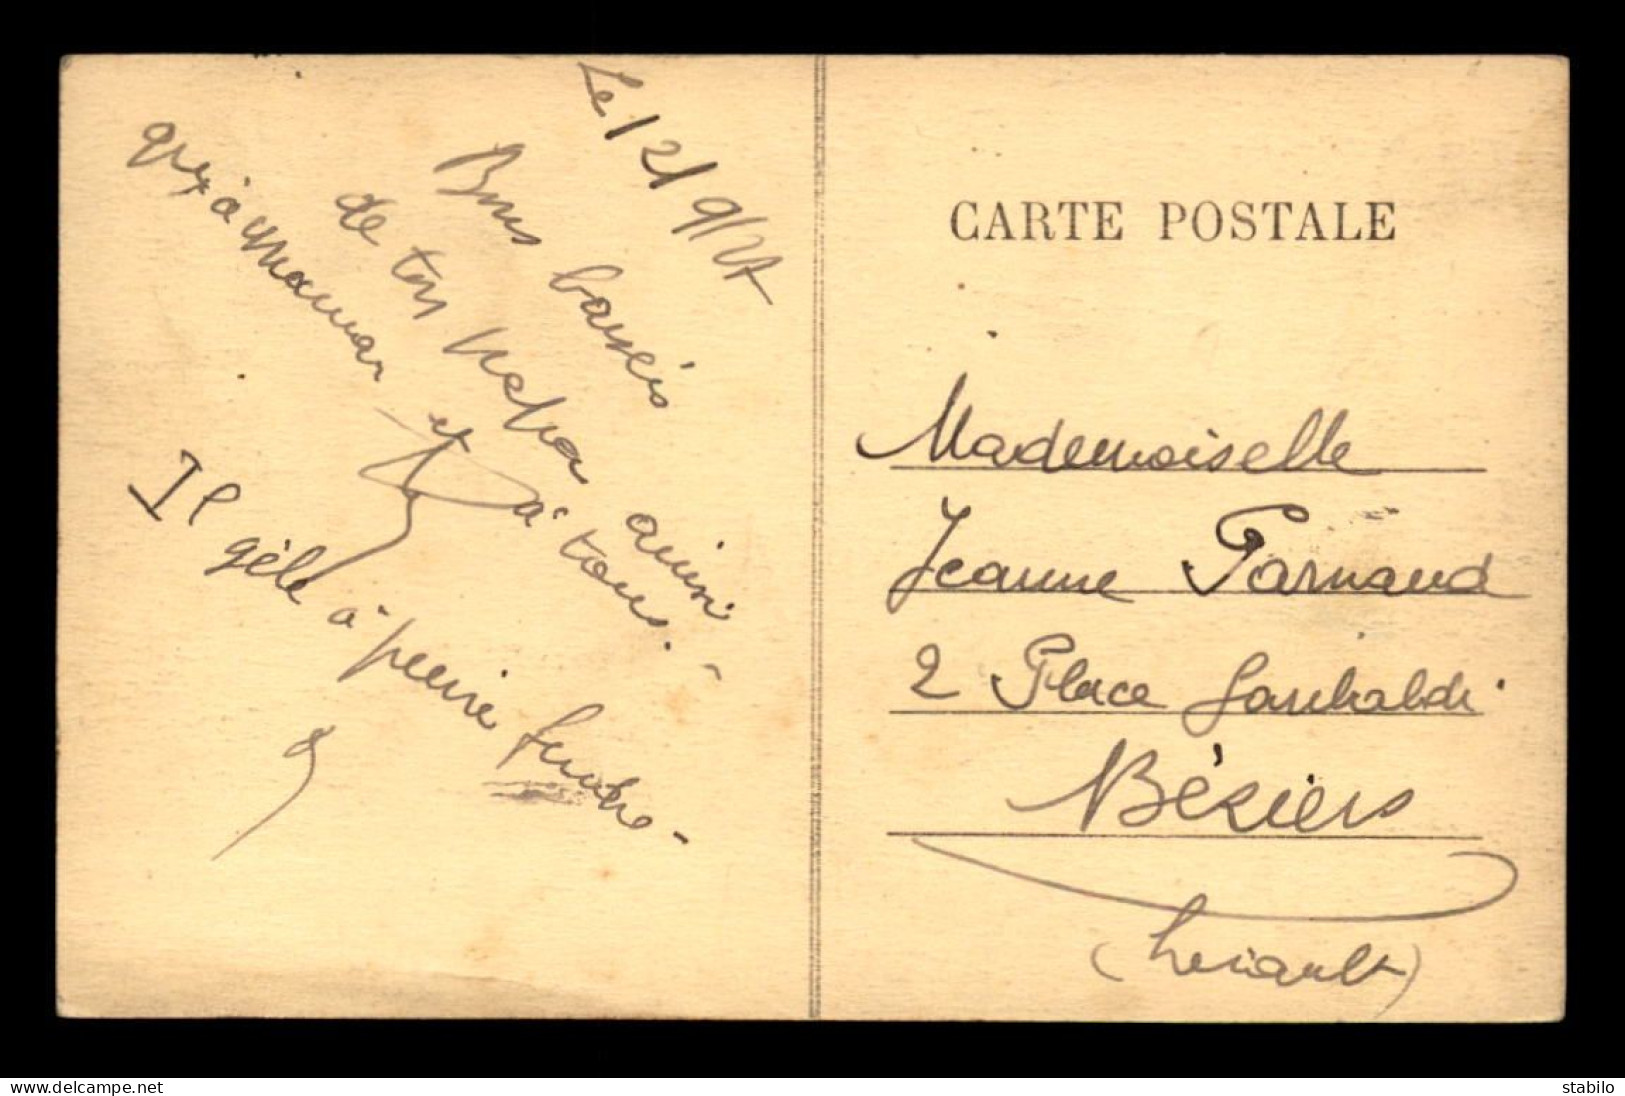 Le 12/9/27
Bons baisers
de ton
ainsi
qu'à maman
et à tous.-
Il gèle à pierre fendre-
CARTE POSTALE
Mademoiselle
Jeanne Parnaud
2 Place Garibaldi
Béziers
(Hérault)
www.delcampe.net
stabilo